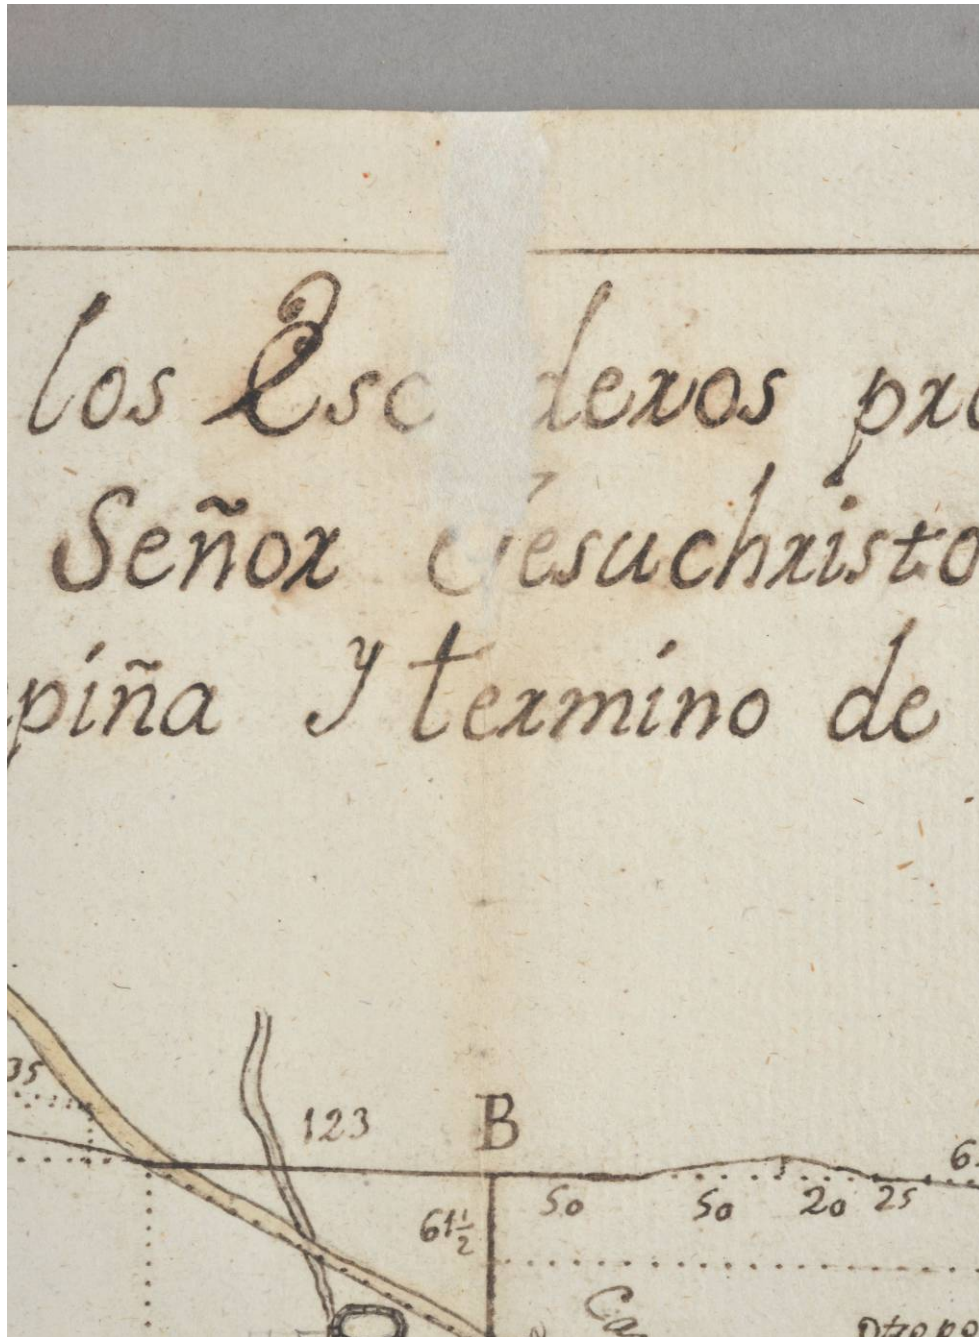 los Esc deros pro
Señor Jesuchristo
piña y termino de
35
123
B
6
61½
50 50 20 25
Ca